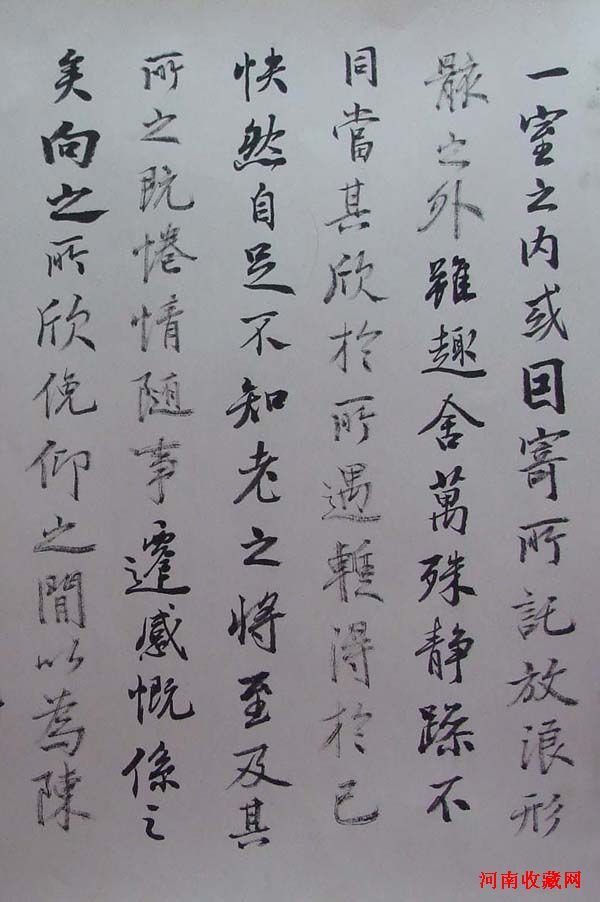 一室之内或因寄所託放浪形
骸之外雖趣舍萬殊静躁不
同當其欣於所遇暫得於己
快然自足不知老之將至及其
所之既惓情随事遷感慨係之
矣向之所欣俛仰之閒以為陳
河南收藏网